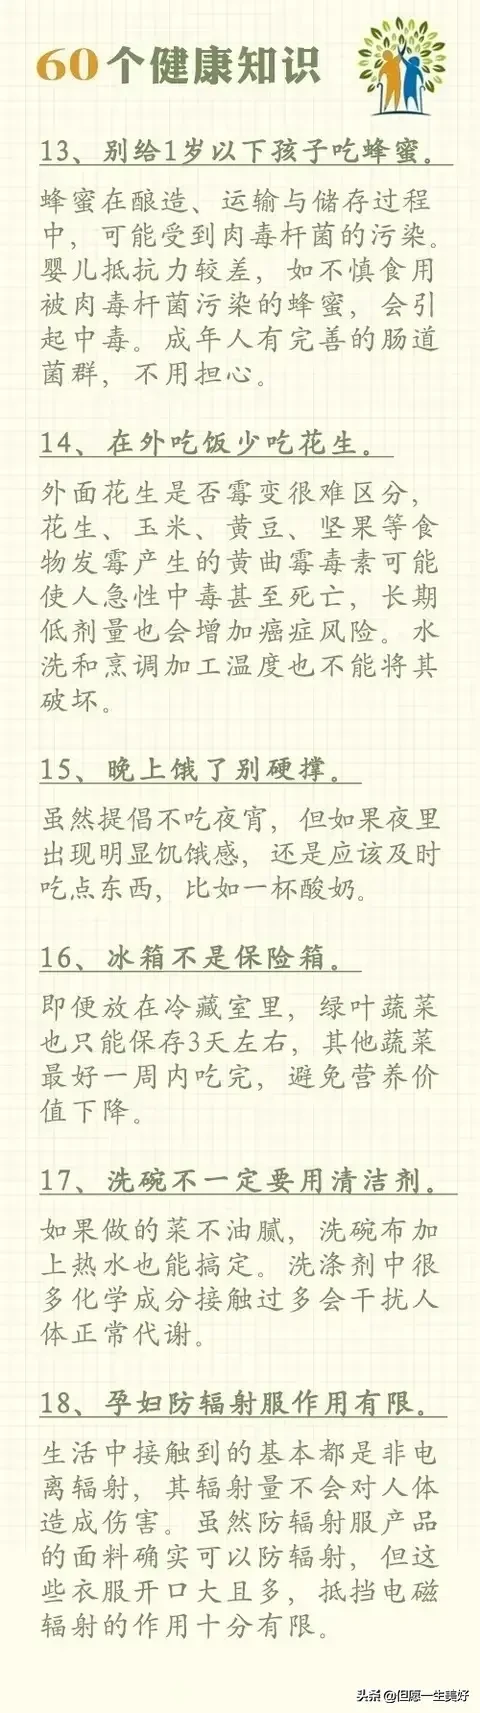 60个健康知识
13、别给1岁以下孩子吃蜂蜜。
蜂蜜在酿造、运输与储存过程
中，可能受到肉毒杆菌的污染。
婴儿抵抗力较差，如不慎食用
被肉毒杆菌污染的蜂蜜，会引
起中毒。成年人有完善的肠道
菌群，不用担心。
14、在外吃饭少吃花生。
外面花生是否霉变很难区分，
花生、玉米、黄豆、坚果等食
物发霉产生的黄曲霉毒素可能
使人急性中毒甚至死亡，长期
低剂量也会增加癌症风险。水
洗和烹调加工温度也不能将其
破坏。
15、晚上饿了别硬撑。
虽然提倡不吃夜宵，但如果夜里
出现明显饥饿感，还是应该及时
吃点东西，比如一杯酸奶。
16、冰箱不是保险箱。
即便放在冷藏室里，绿叶蔬菜
也只能保存3天左右，其他蔬菜
最好一周内吃完，避免营养价
值下降。
17、洗碗不一定要用清洁剂。
如果做的菜不油腻，洗碗布加
上热水也能搞定。洗涤剂中很
多化学成分接触过多会干扰人
体正常代谢。
18、孕妇防辐射服作用有限。
生活中接触到的基本都是非电
离辐射，其辐射量不会对人体
造成伤害。虽然防辐射服产品
的面料确实可以防辐射，但这
些衣服开口大且多，抵挡电磁
辐射的作用十分有限。
头条 @但愿一生美好